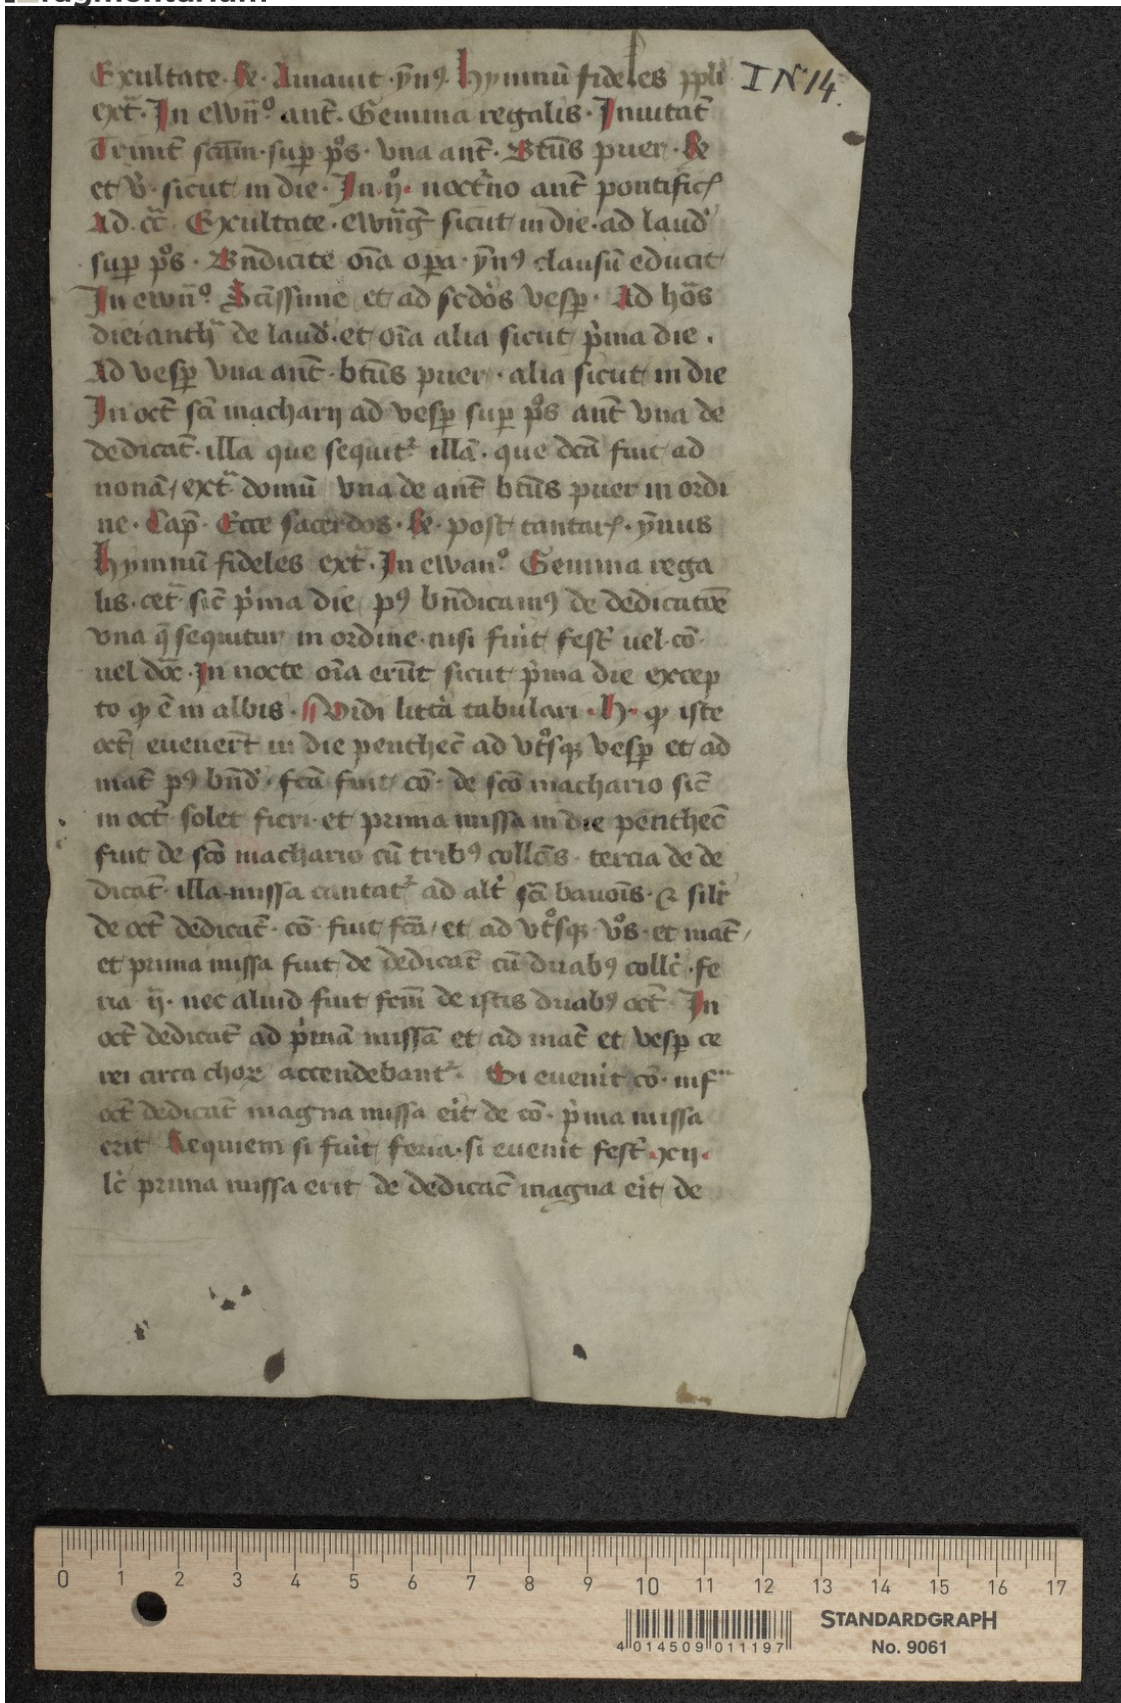 fragmentarium
Exultate · R̃e · Amauit · ỹnꝰ · Hymnũ fideles ppl̃i
ext̃ · In ewñº · ant̃ · Gemma regalis · Inuitat̃
Trinit̃ sc̃am · suꝑ pº̃s · vna ant̃ · Bt̃us puer · R̃e
et v̾ · sicut in die · In · ijº · noct̾no ant̃ pontific̃
Ad · cc̃ · Exultate · ewñg̃ sicut in die · ad laud̾
suꝑ pº̃s · Bñdicite oĩa oꝑa · ỹnꝰ clausũ educit
In ewñº · Sc̃issime et ad sc̃dos vesꝑ · Ad ho̾s
diei anth̃ de laud̾ · et oĩa alia sicut p̾ma die ·
Ad vesꝑ vna ant̃ · bt̃us puer · alia sicut in die
In oct̃ sc̃i macharij ad vesꝑ suꝑ pº̃s ant̃ vna de
dedicat̃ · illa que sequit̾ illã · que dc̃a fuit ad
nonã / ext̃ domũ vna de ant̃ bt̃us puer in ordi
ne · Cap̃ · Ecce sacerdos · R̃e · post cantar̃ · ỹnus
Hymnũ fideles ext̃ · In ewanº · Gemma rega
lis · cet̃ sic̃ p̾ma die pꝰ bñdicamꝰ de dedicatõe
vna q̃ sequitur in ordine · nisi fũit fest̾ uel · cõ ·
uel dõc · In nocte oĩa erũt sicut p̾ma die excep
to ꝙ ẽ in albis · Vidi litt̾a tabulari · h̾ · ꝙ iste
oct̃ euenert̃ in die penthec̃ ad vt̾sqꝫ vesꝑ et ad
mat̃ pꝰ bñd̾ · fc̃a fuit cõ · de sc̃o machario sic̃
in oct̃ solet fieri · et prima missa in die penthec̃
fuit de sc̃o machario cũ tribꝰ coll̃cis · tercia de de
dicat̃ · illa missa cantat̾ ad alt̾ sc̃i bauoĩs · ⁊ sil̾r
de oct̃ dedicat̃ · cõ fuit fc̃a / et ad vt̾sqꝫ vº̃s · et mat̃ /
et prima missa fuit de dedicat̃ cũ duabꝰ coll̾c · fe
ria ij̃ · nec aliud fuit fc̃m de istis duabꝰ oct̃ · In
oct̃ dedicat̃ ad p̾mã missã et ad mat̃ et vesꝑ ce
rei circa choꝝ accendebant̾ · Si euenit cõ · inf̃
oct̃ dedicat̃ magna missa e̾it de cõ · p̾ma missa
erit Requiem si fũit feria · si euenit fest̾ · xij ·
lc̾ prima missa erit de dedicac̃ magna e̾it de
I N 14.
0 1 2 3 4 5 6 7 8 9 10 11 12 13 14 15 16 17
4 014509 011197
STANDARDGRAPH
No. 9061